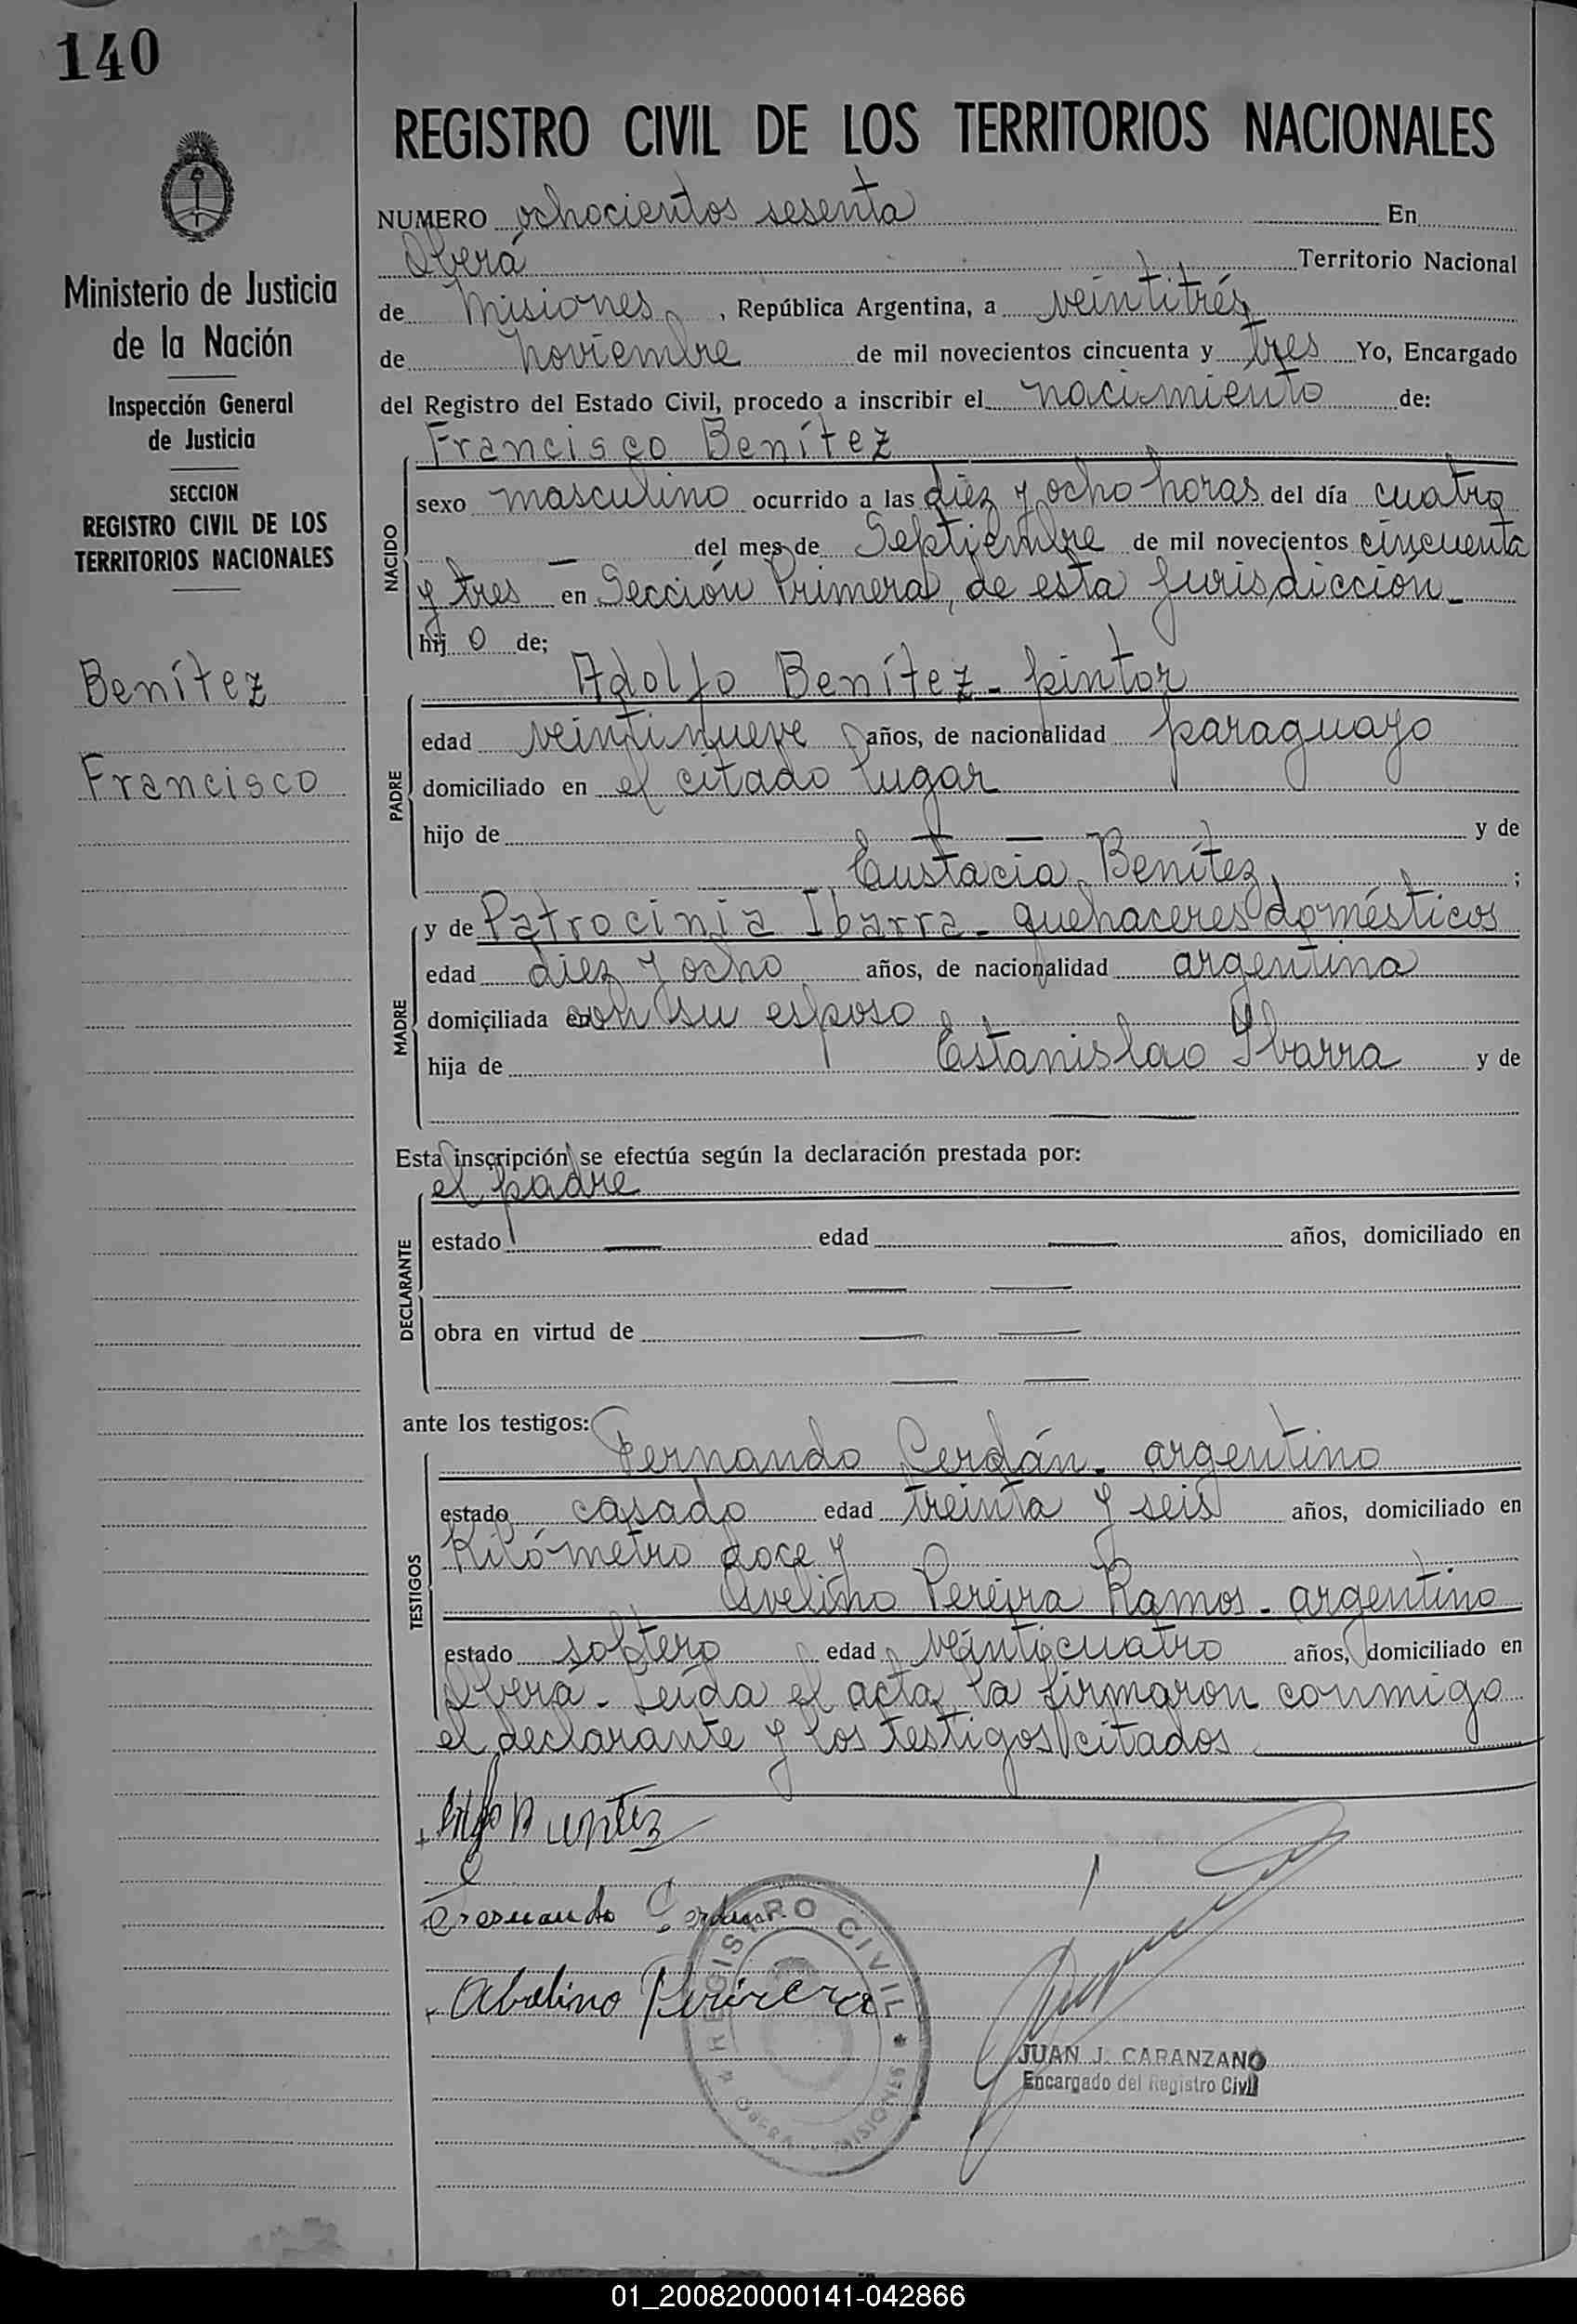 140
REGISTRO CIVIL DE LOS TERRITORIOS NACIONALES
Ministerio de Justicia
de la Nación
Inspección General
de Justicia
SECCION
REGISTRO CIVIL DE LOS
TERRITORIOS NACIONALES
Benítez
Francisco
NUMERO ochocientos sesenta En
Oberá Territorio Nacional
de Misiones, República Argentina, a veintitrés
de Noviembre de mil novecientos cincuenta y tres Yo, Encargado
del Registro del Estado Civil, procedo a inscribir el nacimiento de:
NACIDO
Francisco Benítez
sexo masculino ocurrido a las diez y ocho horas del día cuatro
— del mes de Septiembre de mil novecientos cincuenta
y tres en Sección Primera, de esta jurisdicción.
hij o de;
PADRE
Adolfo Benítez - pintor
edad veintinueve años, de nacionalidad paraguayo
domiciliado en el citado lugar
hijo de — — y de
Eustacia Benítez ;
MADRE
y de Patrocinia Ibarra - quehaceres domésticos
edad diez y ocho años, de nacionalidad argentina
domiciliada en con su esposo
hija de Estanislao Ibarra y de
— —
Esta inscripción se efectúa según la declaración prestada por:
DECLARANTE
el padre
estado — edad — años, domiciliado en
— —
obra en virtud de — —
— —
ante los testigos:
TESTIGOS
Fernando Cerdán - argentino
estado casado edad treinta y seis años, domiciliado en
Kilómetro doce y
Avelino Pereira Ramos - argentino
estado soltero edad veinticuatro años, domiciliado en
Oberá - Leída el acta, la firmaron conmigo
el declarante y los testigos citados
Fernando Cerdan
Abelino Pereira
REGISTRO CIVIL * OBERA MISIONES
JUAN J. CARANZANO
Encargado del Registro Civil
01_200820000141-042866